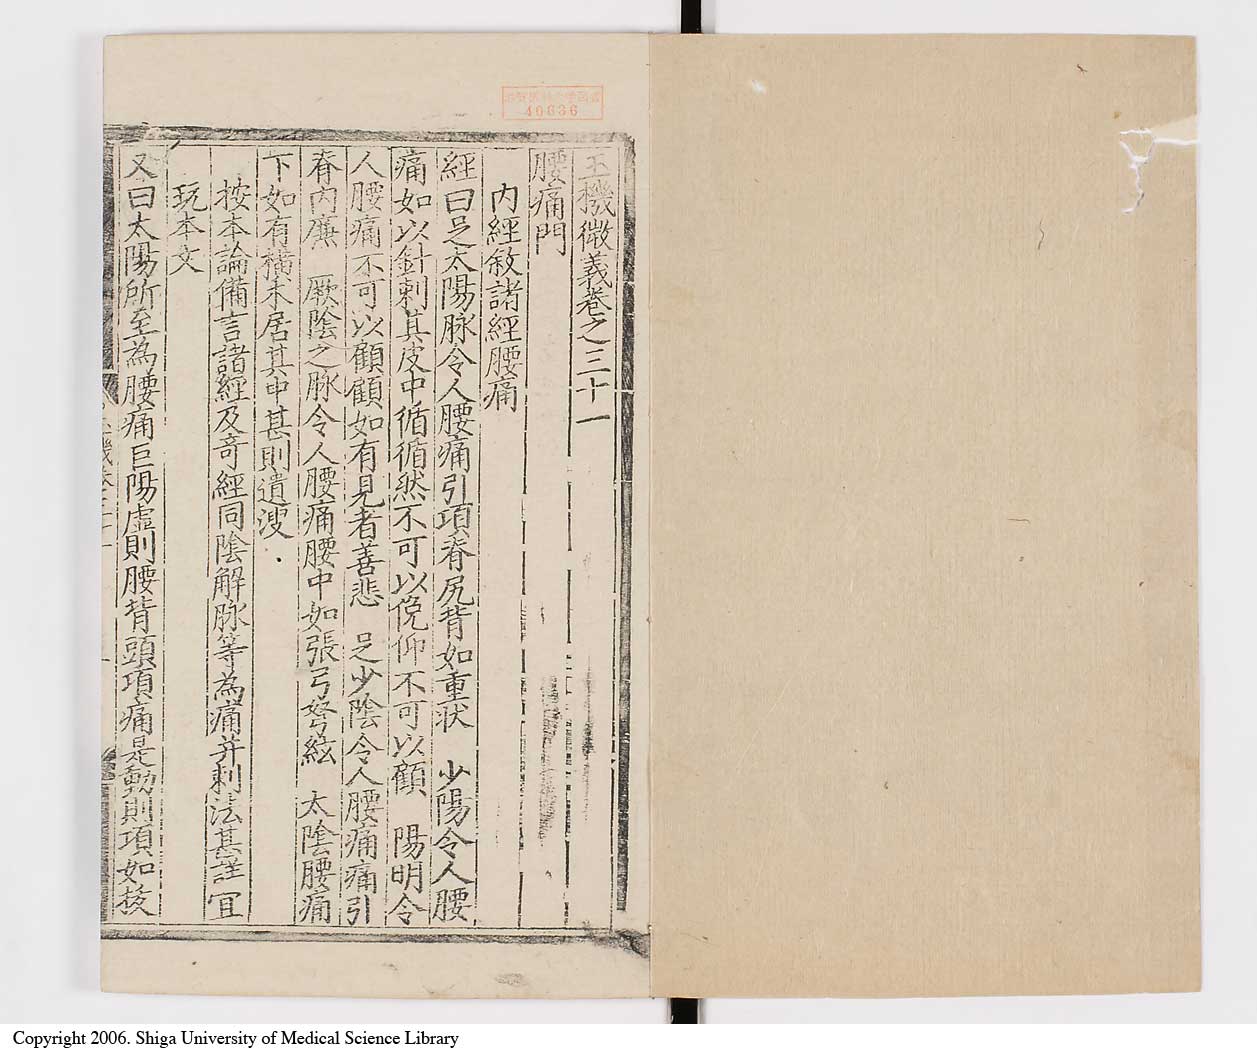 玉機微義卷之三十一
腰痛門
内經敘諸經腰痛
經曰足太陽脉令人腰痛引項脊尻背如重状　少陽令人腰
痛如以針刺其皮中循循然不可以俛仰不可以顧　陽明令
人腰痛不可以顧顧如有見者善悲　足少陰令人腰痛痛引
脊内廉　厥陰之脉令人腰痛腰中如張弓弩絃　太陰腰痛
下如有横木居其中甚則遺溲
按本論備言諸經及奇經同陰解脉等為痛并刺法甚詳宜
玩本文
又曰太陽所至為腰痛巨陽虚則腰背頭項痛是動則項如拔
40636
Copyright 2006. Shiga University of Medical Science Library